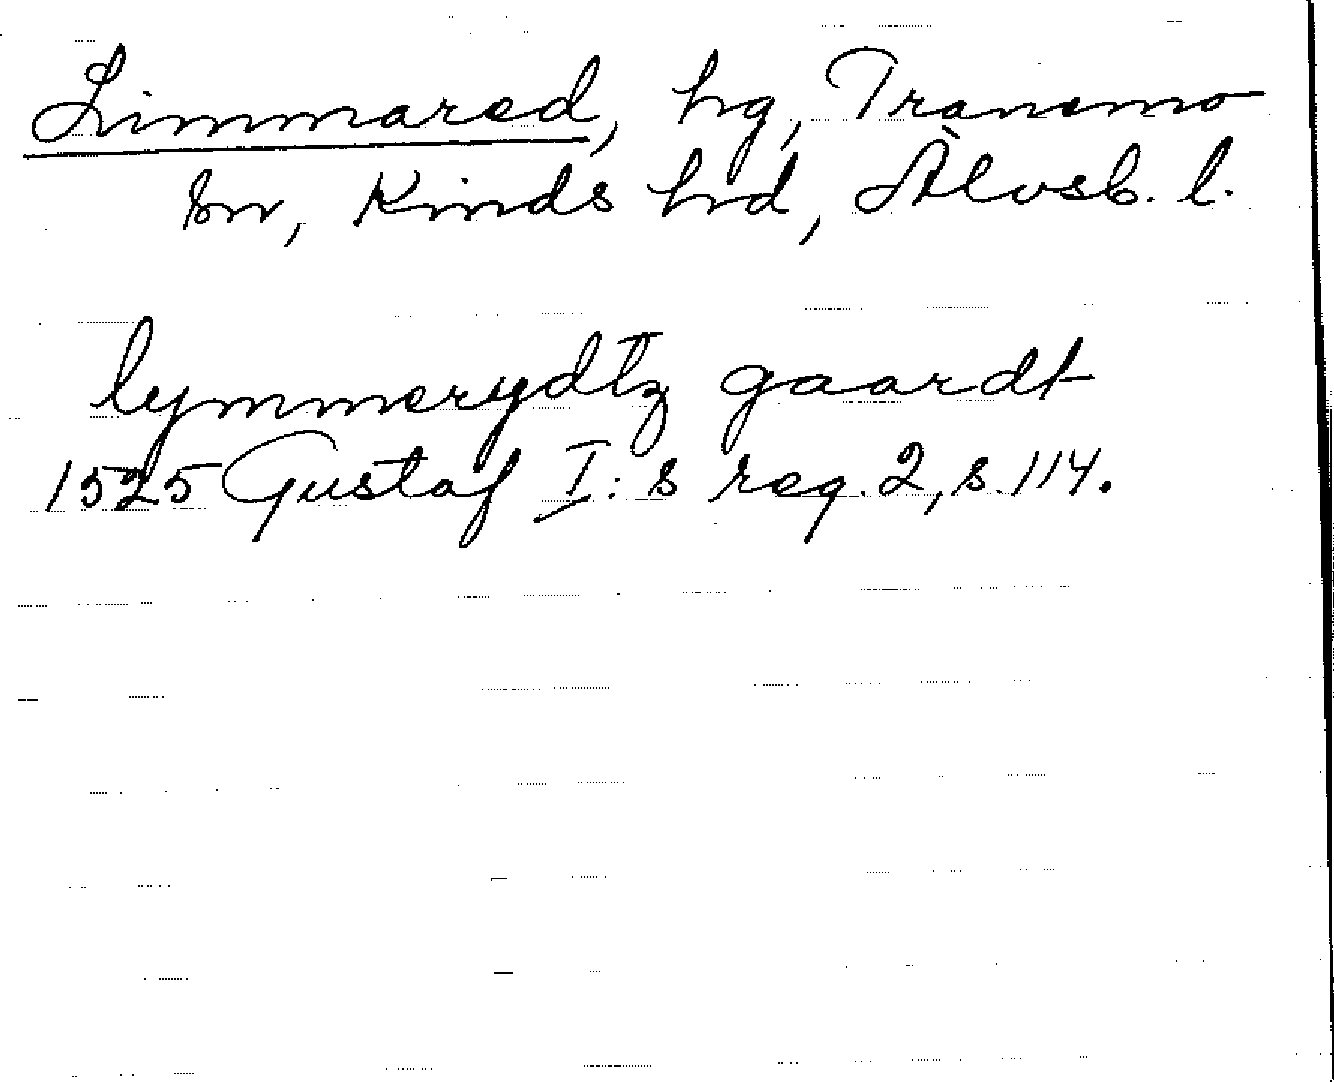 Limmared, hg, Tranemo
sn, Kinds hrd, Älvsb. l.
lymmerydtz gaardt
1525 Gustaf I:s reg. 2, s. 114.